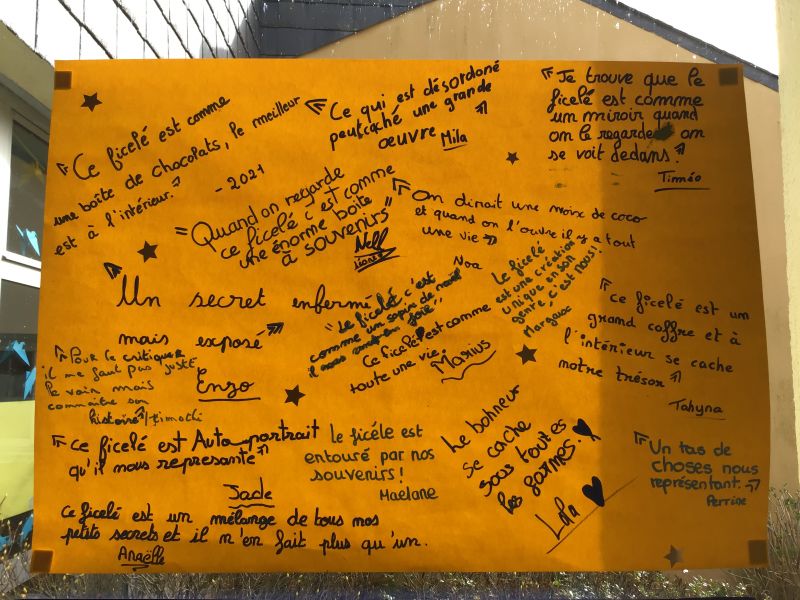 "Ce ficelé est comme
une boîte de chocolats, le meilleur
est à l'intérieur."
- 2021
"Ce qui est désordoné
peut caché une grande
oeuvre"
Mila
"Je trouve que le
ficelé est comme
un miroir quand
on le regarde on
se voit dedans."
Timméo
"Quand on regarde
ce ficelé c'est comme
une énorme boîte
à souvenirs"
"On dirait une noix de coco
et quand on l'ouvre il y a tout
une vie"
Noa
"Un secret enfermé
mais exposé"
Enzo
"Le ficelé c'est
comme un sapin de noël
il nous met en joie"
Ce ficelé est comme
toute une vie
Marius
Le ficelé
est une création
unique en son
genre, c'est nous!
Margaux
"Ce ficelé est un
grand coffre et à
l'intérieur se cache
notre trésor"
Tahyna
"Pour le critiquer
il me faut pas juste
le voir mais
connaître son
histoire" Timothi
"Ce ficelé est Auto_portrait
qu'il nous represante"
Jade
le ficéle est
entouré par nos
souvenirs!
Maelane
Le bonheur
se cache
sous toutes
les formes.
Lola
"Un tas de
choses nous
représentant."
Perrine
Ce ficelé est un mélange de tous nos
petits secrets et il n'en fait plus qu'un.
Anaëlle